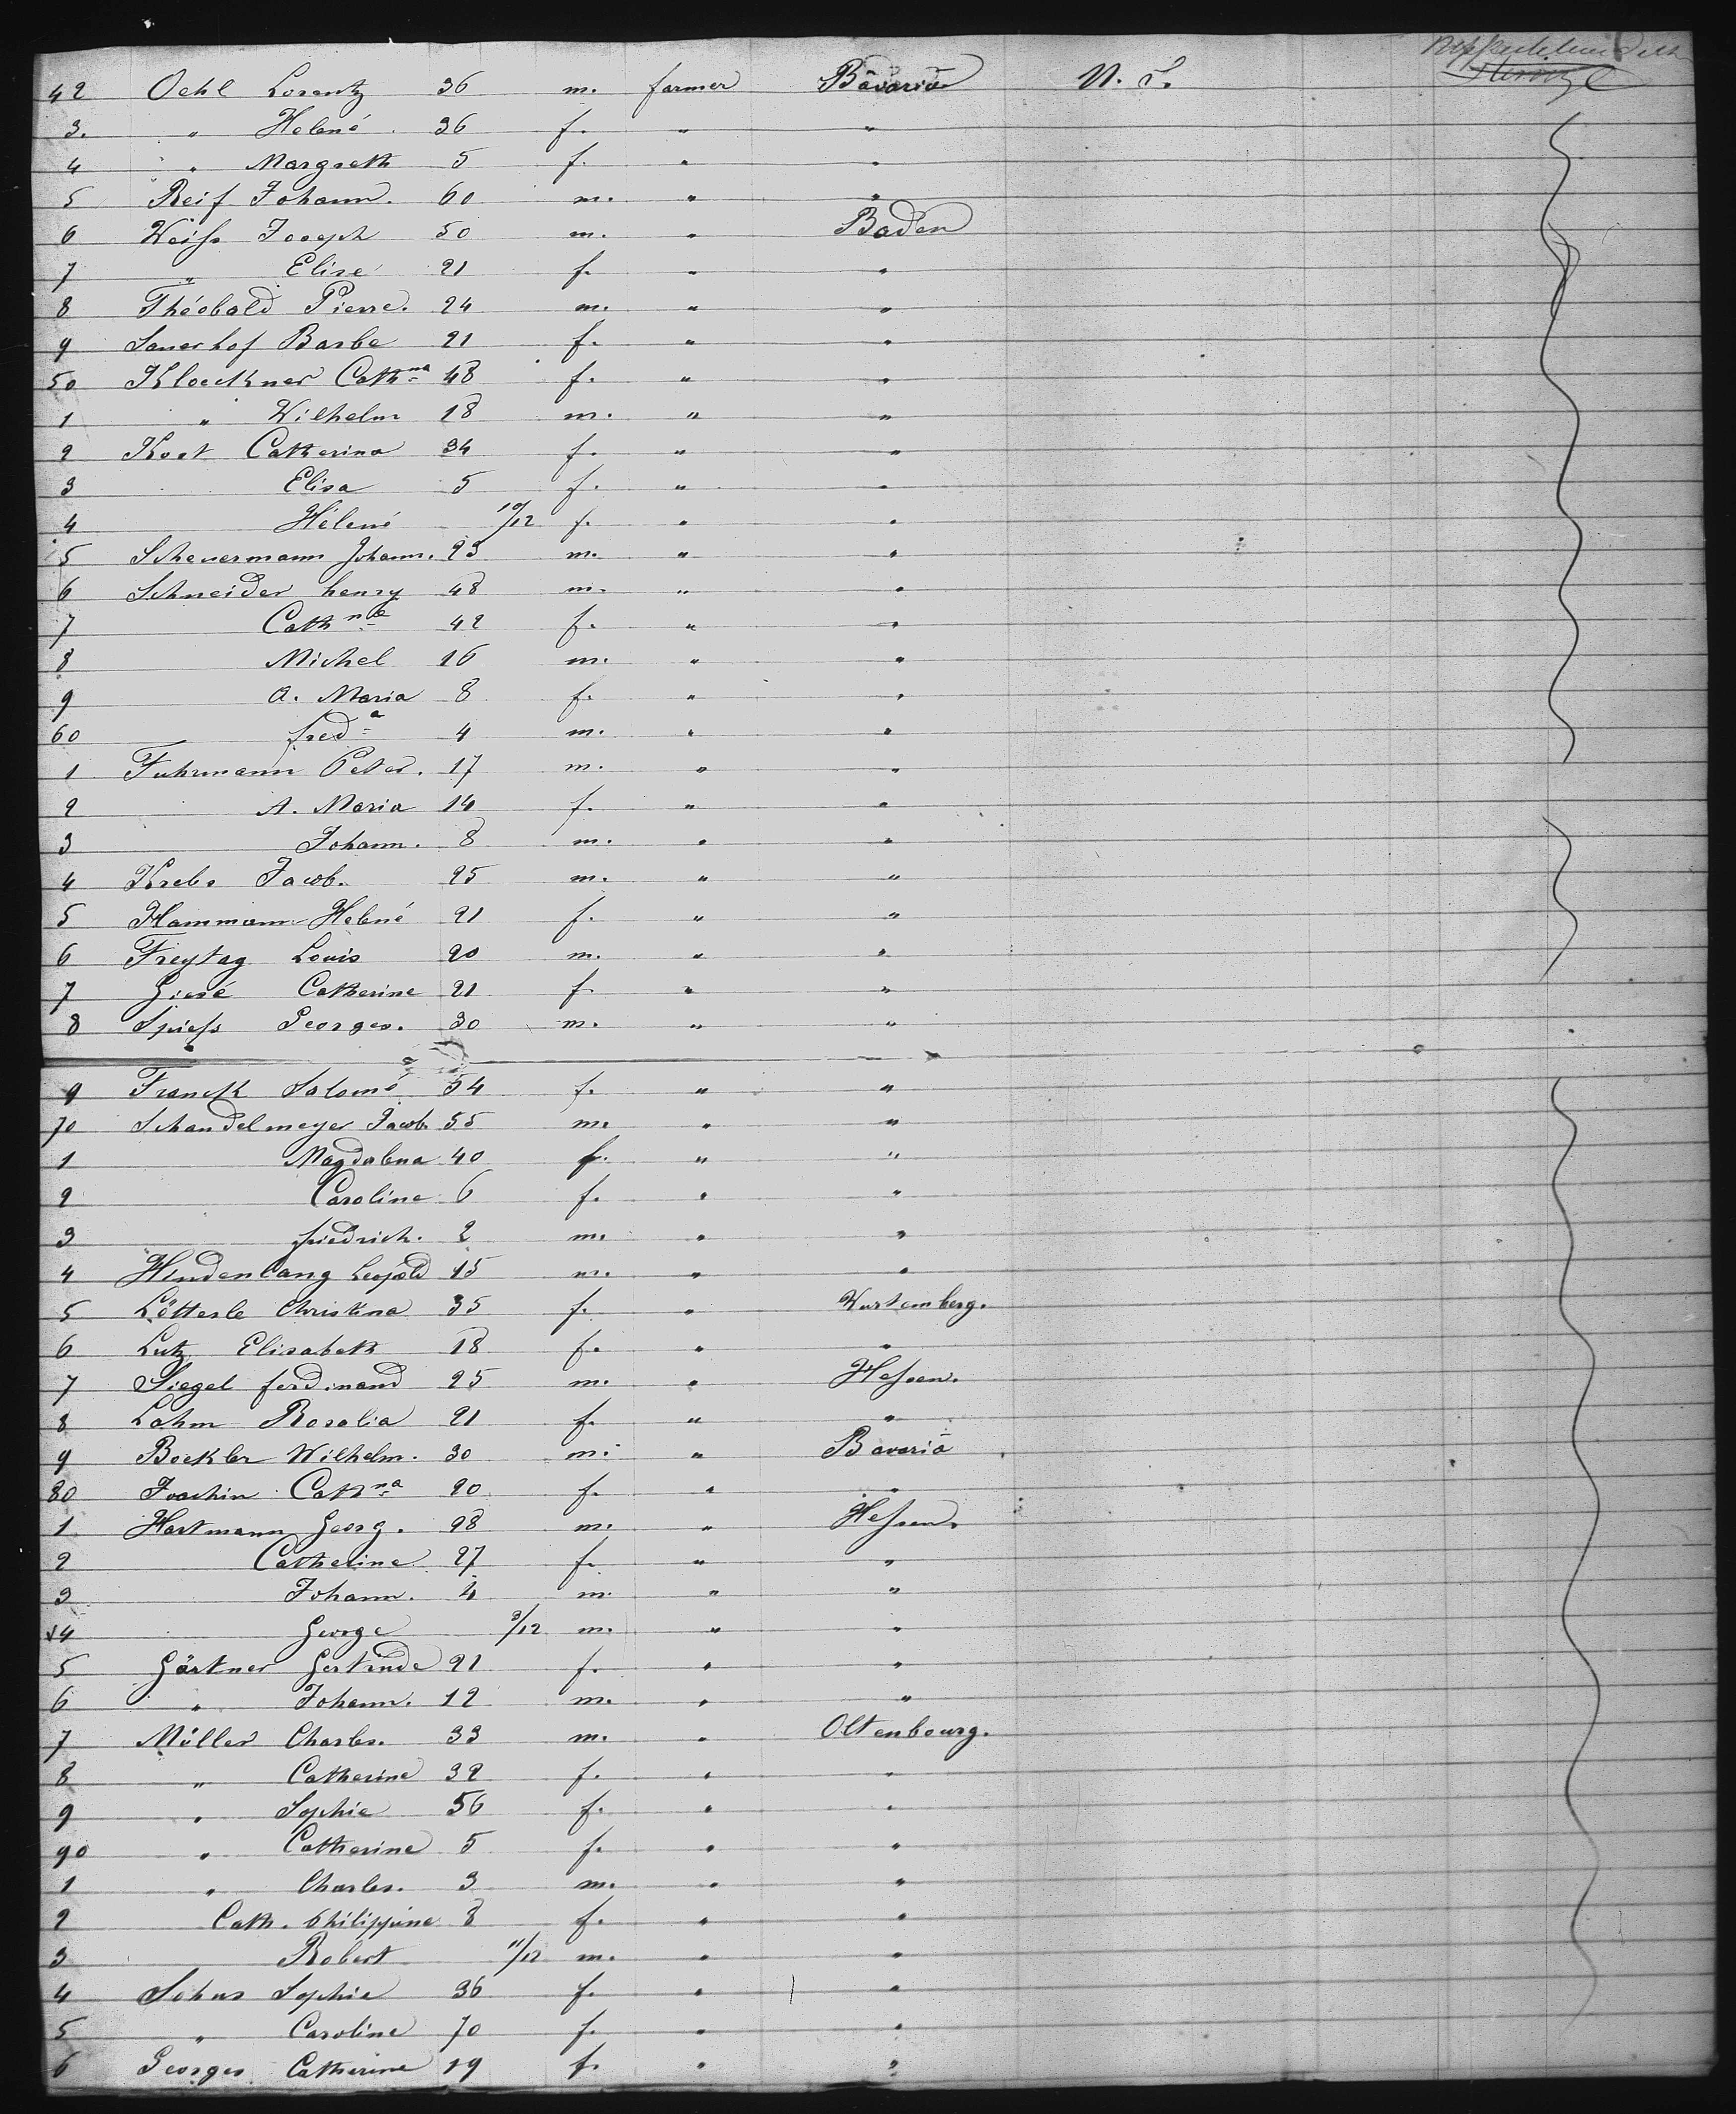 42 Oehl Lorentz 36 m. farmer Bavaria U. S.
3. " Helené 36 f. " "
4 " Margreth 5 f. " "
5 Reif Johann. 60 m. " "
6 Weiss Joseph 50 m. " Baden
7 " Elise 21 f. " "
8 Théobald Pierre. 24 m. " "
9 Sauerhof Barbe 21 f. " "
50 Kloeckner Cathna 48 f. " "
1 " Wilhelm 18 m. " "
2 Koet Catherina 34 f. " "
3 Elisa 5 f. " "
4 Hélené 10/12 f. " "
5 Scheuermann Johann. 23 m. " "
6 Schneider henry 48 m. " "
7 Cathna 42 f. " "
8 Michel 16 m. " "
9 A. Maria 8 f. " "
60 freda 4 m. " "
1 Fuhrmann Peter. 17 m. " "
2 A. Maria 14 f. " "
3 Johann. 8 m. " "
4 Krebs Jacob. 25 m. " "
5 Hammann Helené 21 f. " "
6 Freytag Louis 20 m. " "
7 Giesé Catherine 21 f " "
8 Spiess Georges. 30 m. " "
9 Franck Salomé 54 f. " "
70 Schandelmeyer Jacob. 55 m. " "
1 Magdalena 40 f. " "
2 Caroline 6 f. " "
3 friedrich. 2 m. " "
4 Hindenlang Leopold 15 m. " "
5 Lötterle Christina 35 f. " Wurtemberg.
6 Lutz Elisabeth 18 f. " "
7 Siegel ferdinand 25 m. " Hessen.
8 Lahm Rosalia 21 f. " "
9 Boekler Wilhelm. 30 m. " Bavaria
80 Joachin Cathna 20 f. " "
1 Hartmann Georg. 28 m. " Hessen.
2 Catherine 27 f. " "
3 Johann. 4 m. " "
4 George 3/12 m. " "
5 Gärtner Gertrude 21 f. " "
6 " Johann. 12 m. " "
7 Müller Charles. 33 m. " Oltenbourg.
8 " Catherine 32 f. " "
9 " Sophie 56 f. " "
90 " Catherine 5 f. " "
1 " Charles. 3 m. " "
2 Cath. Philippine 8 f. " "
3 Robert 11/12 m. " "
4 Sohns Sophie 36 f. " "
5 " Caroline 70 f. " "
6 Georges Catherine 19 f. " "